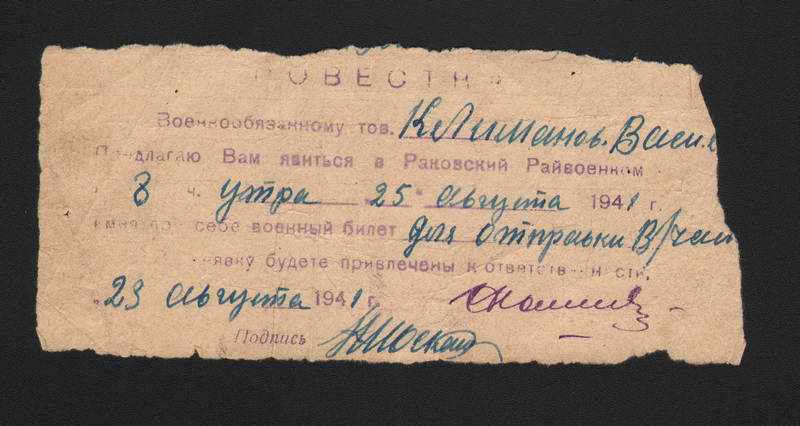 ПОВЕСТК
Военнообязанному тов. Климанов. Васил
Предлагаю Вам явиться в Раковский Райвоенком
8 ч. утра 25 августа 1941 г.
имея при себе военный билет для отправки В/Час
неявку будете привлечены к ответственности.
23 августа 1941 г.
Подпись